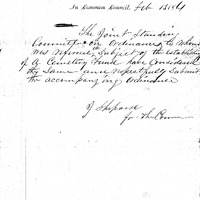 In Common Council, Feb 15 1864
The Joint Standing
Committee on Ordinances to whom
was referred subject of the establishing
of a Cemetery Fund have considered
the same and respectfully submit
the accompanying ordinance
J Shepard
for the Com